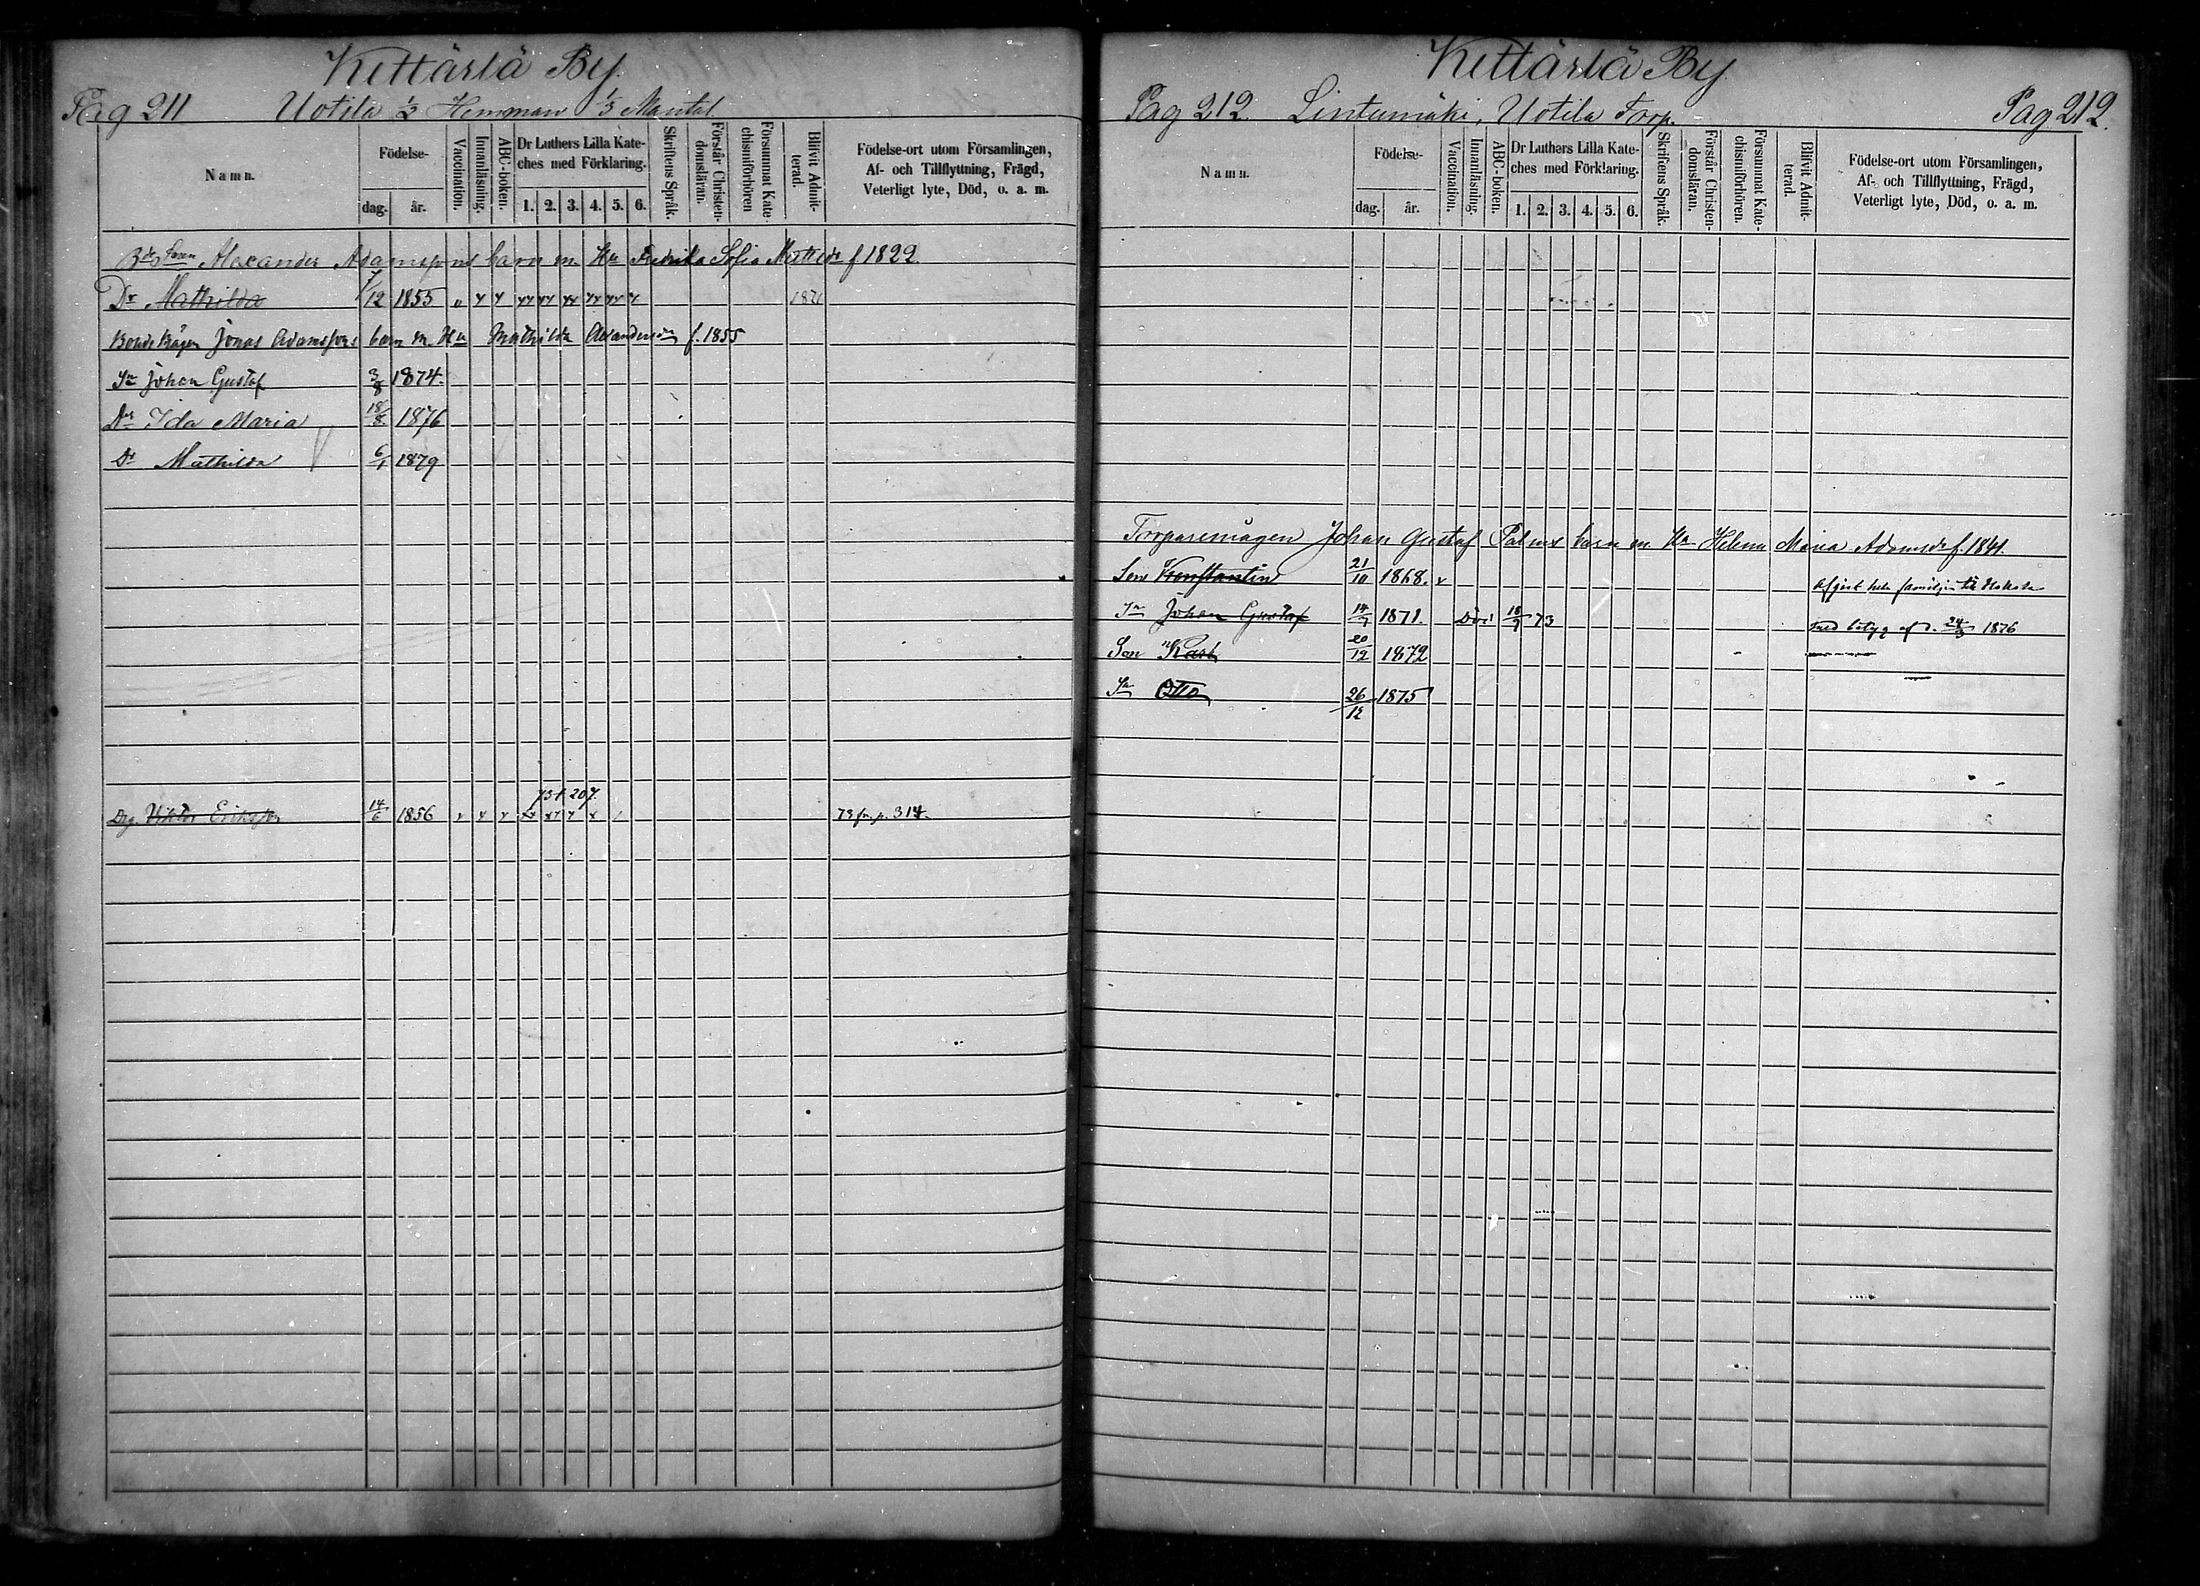 Kettärlä By.
Pag 211 Uotila 1/3 Hemman 1/3 Mantal
Namn.
Födelse-
dag.
år.
Vaccination.
Innanläsning.
ABC-boken.
Dr Luthers Lilla Kate-
ches med Förklaring.
1. 2. 3. 4. 5. 6.
Skriftens Språk.
Förstår Christen-
domsläran.
Försummat Kate-
chismiförhören
Blifvit Admit-
terad.
Födelse-ort utom Församlingen,
Af- och Tillflyttning, Frägd,
Veterligt lyte, Död, o. a. m.
Alexander Adamssons barn m. Hu Fredrika Sofia f 1822
Dr Mathilda 1/12 1855
Jonas Adamssons barn m. Hu Mathilda Alexandersdr f. 1855
Sn Johan Gustaf 3/8 1874.
Dr Ida Maria 18/8 1876
Dr Mathilda 6/1 1879
73 t. 207.
Drg. Viktor Eriksson 14/6 1856 73 fr. p. 314.
Kettärlä By
Pag 212. Lintumäki, Uotila Torp. Pag 212.
Namn.
Födelse-
dag.
år.
Vaccination.
Innanläsning.
ABC-boken.
Dr Luthers Lilla Kate-
ches med Förklaring.
1. 2. 3. 4. 5. 6.
Skriftens Språk.
Förstår Christen-
domsläran.
Försummat Kate-
chismiförhören.
Blifvit Admit-
terad.
Födelse-ort utom Församlingen,
Af- och Tillflyttning, Frägd,
Veterligt lyte, Död, o. a. m.
Torparemågen Johan Gustaf Palms barn m. Hu Helena Maria Adamsdr f. 1841.
Son Konstantin 21/10 1868. Afgick hela familjen till
Sn Johan Gustaf 14/7 1871. Död 18/7 73 med betyg af d. 24/3 1876
Son Karl 20/12 1872
Sn Otto 26/12 1875